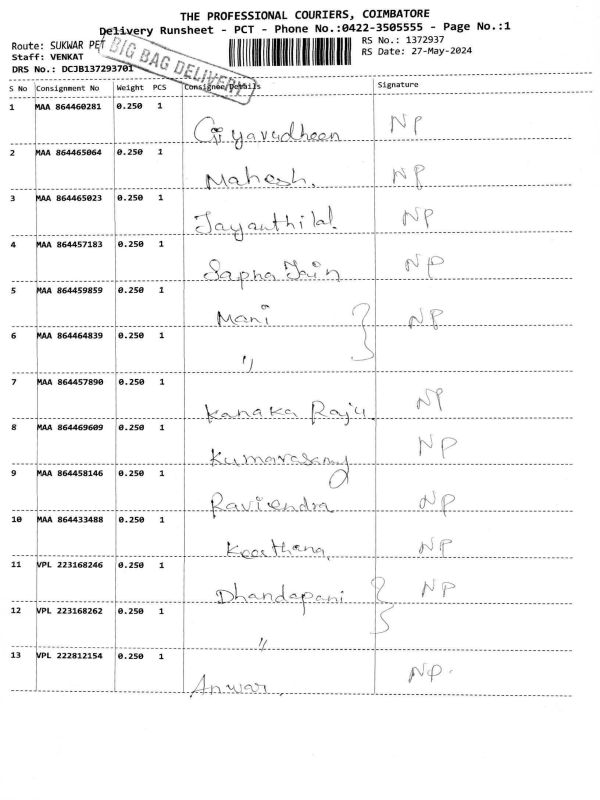 THE PROFESSIONAL COURIERS, COIMBATORE
Delivery Runsheet - PCT - Phone No.:0422-3505555 - Page No.:1
Route: SUKWAR PET
RS No.: 1372937
Staff: VENKAT
RS Date: 27-May-2024
DRS No.: DCJB137293701
BIG BAG DELIVERY
S No Consignment No Weight PCS Consignee/Details Signature
1 MAA 864460281 0.250 1 NP
2 MAA 864465064 0.250 1 Mahesh. NP
3 MAA 864465023 0.250 1 Jayanthilal NP
4 MAA 864457183 0.250 1 Sapna Jain NP
5 MAA 864459859 0.250 1 Mani NP
6 MAA 864464839 0.250 1 "
7 MAA 864457890 0.250 1 Kanaka Raju. NP
8 MAA 864469609 0.250 1 Kumarasamy NP
9 MAA 864458146 0.250 1 Ravindra NP
10 MAA 864433488 0.250 1 Keerthana. NP
11 VPL 223168246 0.250 1 Dhandapani NP
12 VPL 223168262 0.250 1 "
13 VPL 222812154 0.250 1 Anwar. NP.